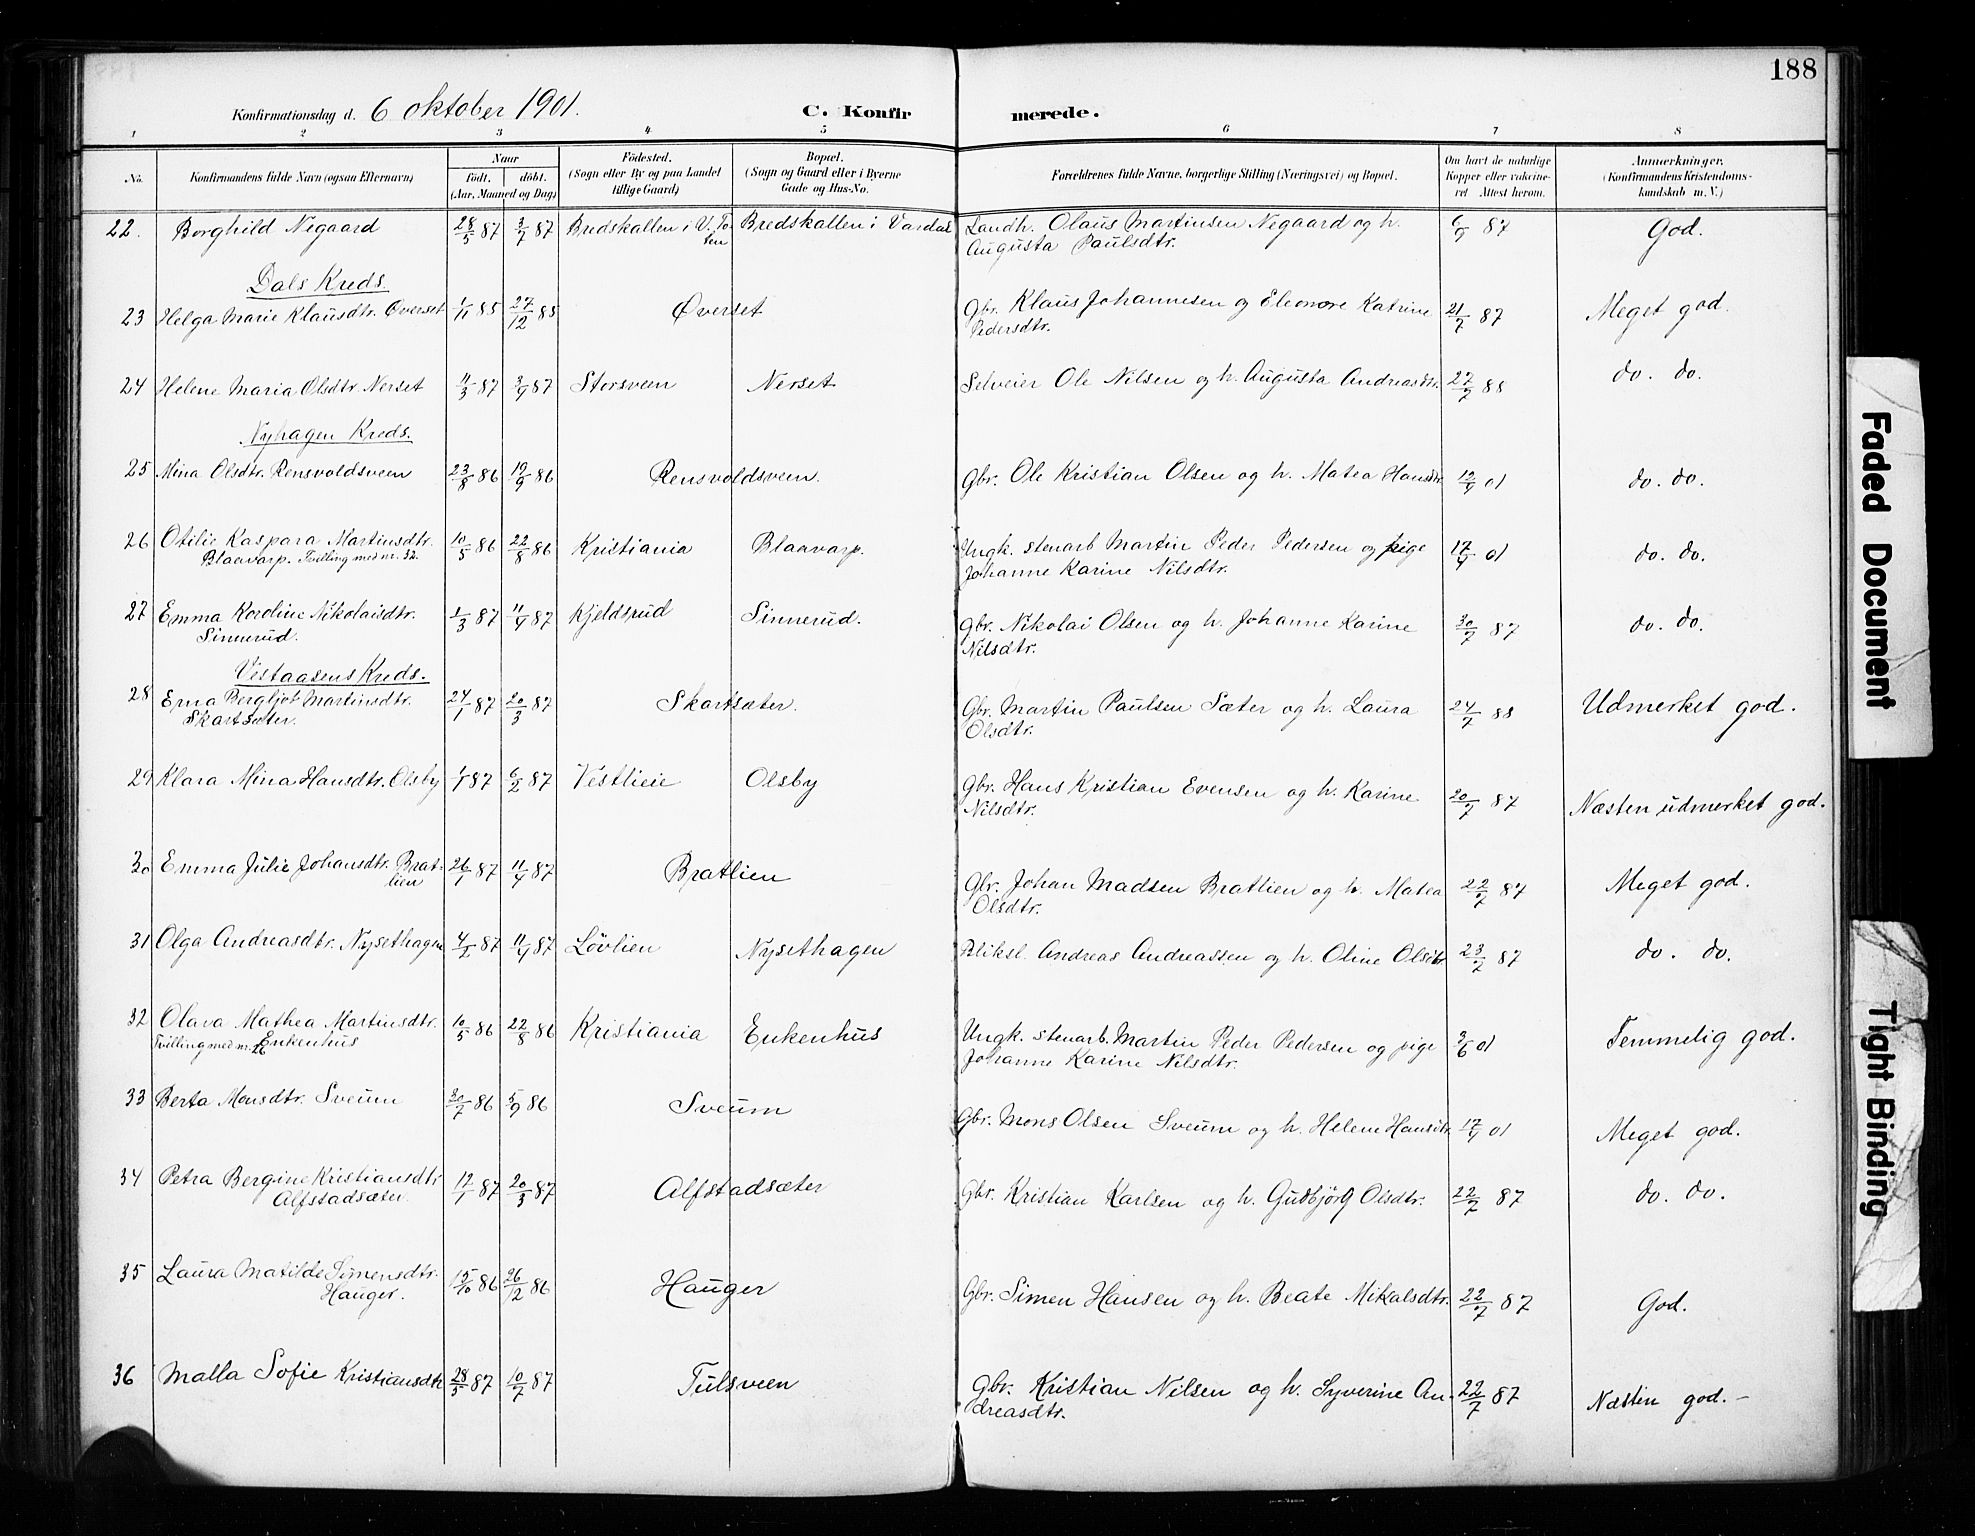 188
Konfirmationsdag d. 6 oktober 1901. C. Konfirmerede.
1 2 3 4. 5 6 7 8
No. Konfirmandens fulde Navn (ogsaa Efternavn) Naar født. døbt. (Aar, Maaned og Dag) Fødested. (Sogn eller By og paa Landet tillige Gaard) Bopæl. (Sogn og Gaard eller i Byerne Gade og Hus-No. Forældrenes fulde Navne, borgerlige Stilling (Næringsvei) og Bopæl. Om havt de naturlige Kopper eller vakcineret Attest herom. Anmerkninger. (Konfirmandens Kristendomskundskab m. V.)
22. Borghild Negaard 28/5 87 3/7 87 Bredskallen i V. Toten Bredskallen i Vardal Landh. Olaus Martinsen Negaard og h. Augusta Paulsdtr. 6/9 87 God.
Dals Kreds.
23 Helga Marie Klausdtr. Øverset 1/11 85 27/12 85 Øverset Gbr. Klaus Johannesen og Eleonore Katrine Pedersdtr. 21/7 87 Meget god.
24 Helene Maria Olsdtr. Nerset 11/3 87 3/9 87 Storsveen Nerset Selveier Ole Nilsen og h. Augusta Andreasdtr. 27/7 88 do. do.
Nyhagen Kreds.
25 Mina Olsdtr. Rensvoldsveen 23/8 86 19/9 86 Rensvoldsveen. Gbr. Ole Kristian Olsen og h. Matea Hansdtr. 12/9 01 do. do.
26 Otilie Kaspara Martinsdtr. Blaavarp. Tvilling med nr. 32. 10/5 86 22/8 86 Kristiania Blaavarp. Ungk. stenarb Martin Peder Pedersen og pige Johanne Karine Nilsdtr. 17/9 01 do. do.
27 Emma Karoline Nikolaisdtr. Sinnerud. 1/3 87 11/4 87 Kjeldsrud Sinnerud. Gbr. Nikolai Olsen og h. Johanne Karine Nilsdtr. 30/7 87 do. do.
Vestaasens Kreds.
28 Erna Bergljot Martinsdtr. Skartsæter. 24/1 87 20/3 87 Skartsæter. Gbr. Martin Paulsen Sæter og h. Laura Olsdtr. 24/7 88 Udmerket god.
29 Klara Mina Hansdtr. Olsby 1/1 87 6/2 87 Vestlieie Olsby Gbr. Hans Kristian Evensen og h. Karine Nilsdtr. 20/7 87 Næsten udmerket god.
30 Emma Julie Johansdtr. Bratlien 26/1 87 11/4 87 Bratlien Gbr. Johan Madsen Bratlien og h. Matea Olsdtr. 22/7 87 Meget god.
31 Olga Andreasdtr. Nysethagen 4/2 87 11/4 87 Lövlien Nysethagen Bliksl. Andreas Andreassen og h. Oline Olsdtr 23/7 87 do. do.
32 Olava Mathea Martinsdtr. Enkenhus Tvilling med nr. 26 10/5 86 22/8 86 Kristiania Enkenhus Ungk. stenarb. Martin Peder Pedersen og pige Johanne Karine Nilsdtr. 3/6 01 Temmelig god.
33 Berta Monsdtr. Sveum 30/7 86 5/9 86 Sveum Gbr. Mons Olsen Sveum og h. Helene Hansdtr. 17/9 01 Meget god.
34 Petra Bergine Kristiansdtr Alfstadsæter. 17/1 87 20/3 87 Alfstadsæter Gbr. Kristian Karlsen og h. Gudbjörg Olsdtr. 22/7 87 do. do.
35 Laura Matilde Simensdtr. Hauger. 15/10 86 26/12 86 Hauger Gbr. Simen Hansen og h. Beate Mikalsdtr. 22/7 87 God.
36 Malla Sofie Kristiansdtr 28/5 87 10/7 87 Tulsveen Gbr. Kristian Nilsen og h. Syverine Andreasdtr. 22/7 87 Næsten god.-
Faded Document
Tight Binding